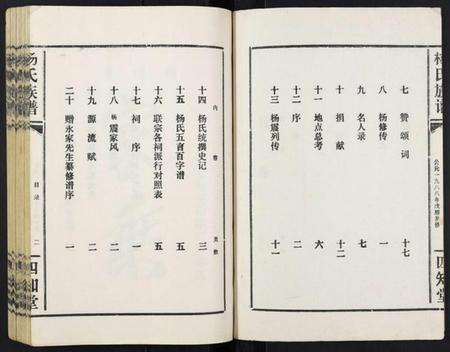 杨氏族谱
公元一九八八年戊辰年修
四知堂
七 赞颂词 十七
八 杨修传 一
九 名人录 七
十 捐献 十二
十一 地点总考 六
十二 序 二
十三 杨震列传 十一
内容 页数
十四 杨氏统撰史记 三
十五 杨氏五言百字谱 五
十六 联宗各祠派行对照表 五
十七 祠序 一
十八 杨震家风 二
十九 源流赋 二
二十 赠永家先生纂修谱序 一
杨氏族谱
目录 二
四知堂